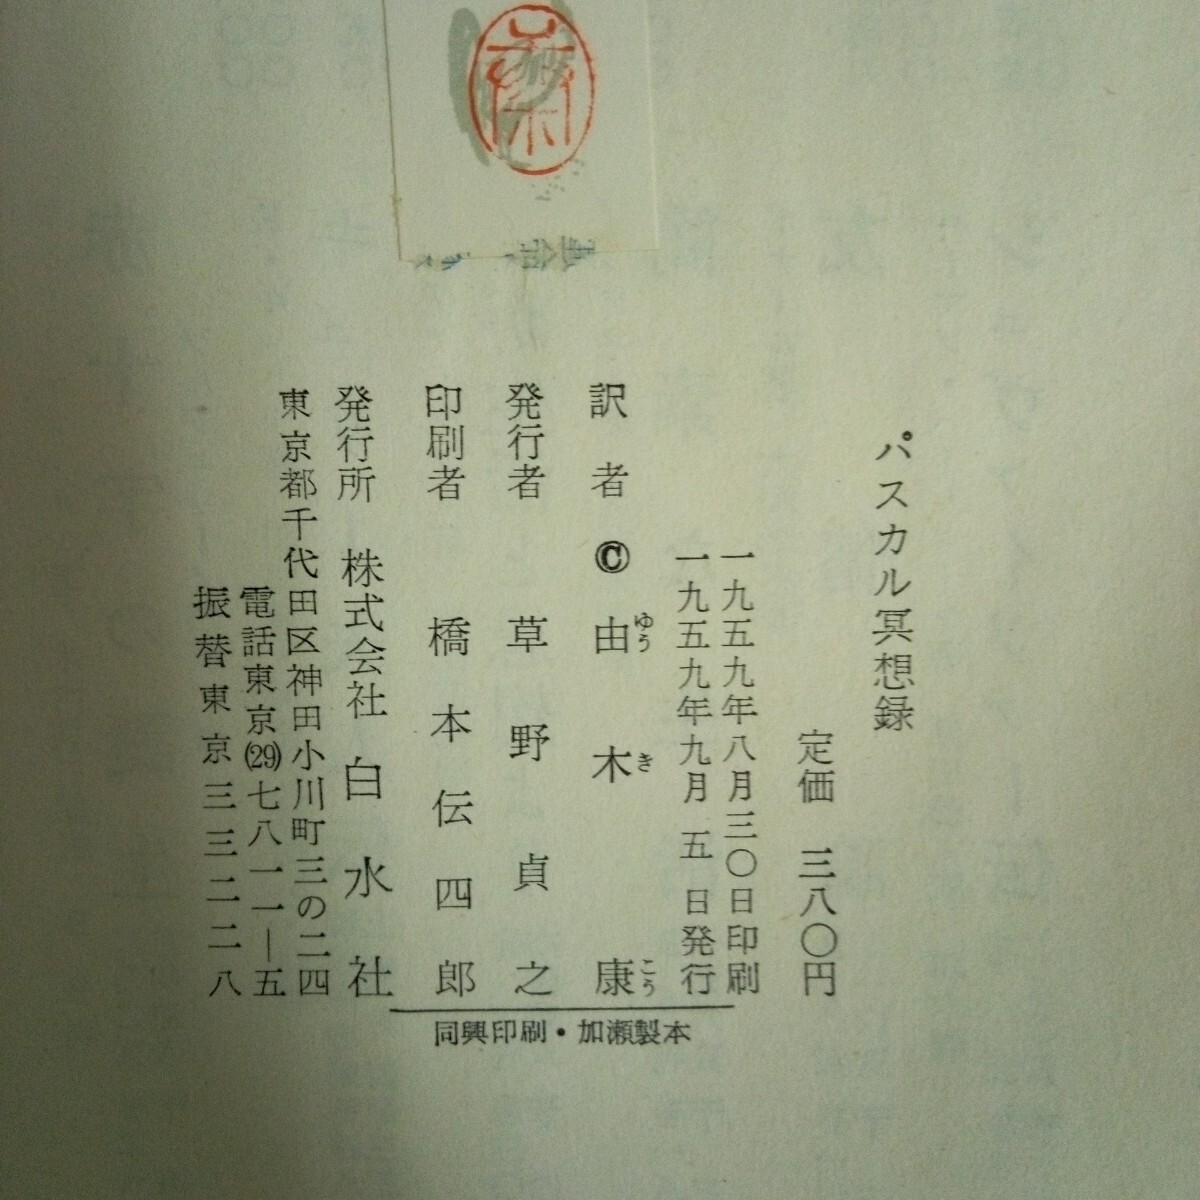 パスカル冥想録
定価 三八〇円
一九五九年八月三〇日印刷
一九五九年九月 五日発行
訳者 © 由木 康
ゆう き こう
発行者 草野貞之
印刷者 橋本伝四郎
発行所 株式会社 白水社
東京都千代田区神田小川町三の二四
電話東京(29)七八一一―五
振替東京三三二二八
同興印刷・加瀬製本